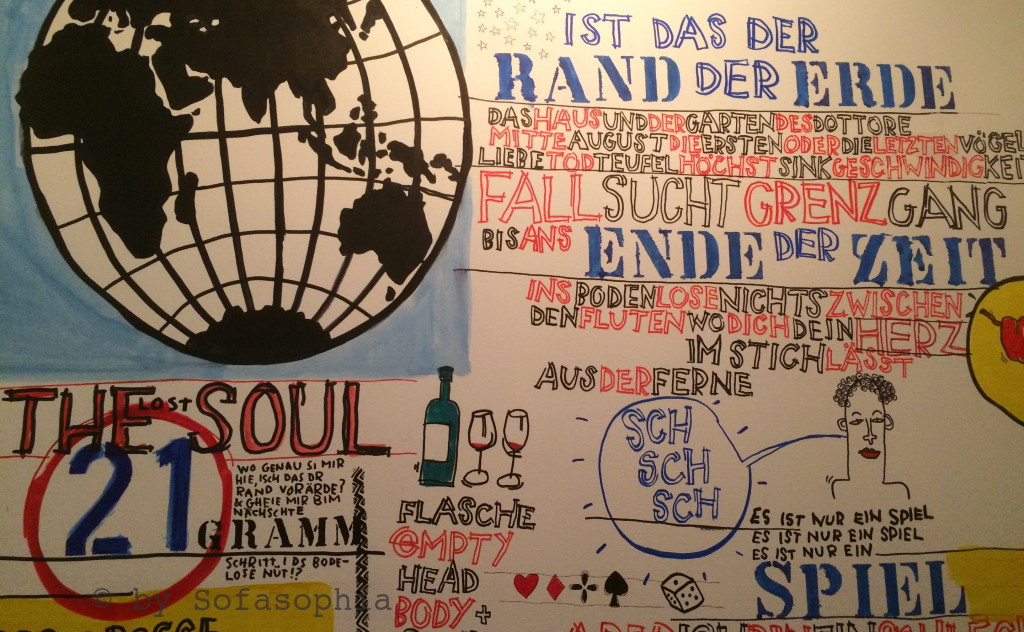 IST DAS DER
RAND DER ERDE
DAS HAUS UND DER GARTEN DES DOTTORE
MITTE AUGUST DIE ERSTEN ODER DIE LETZTEN VÖGEL
LIEBE TOD TEUFEL HÖCHST SINK GESCHWINDIGKEIT
FALL SUCHT GRENZ GANG
BIS ANS ENDE DER ZEIT
INS BODENLOSE NICHTS ZWISCHEN
DEN FLUTEN WO DICH DEIN HERZ
IM STICH LÄSST
AUS DER FERNE
THE LOST SOUL
21
GRAMM
WO GENAU SI MIR
HIE, ISCH DAS DR
RAND VOR ÄRDE?
& GHEIE MIR BIM
NÄCHSCHTE
SCHRITT I DS BODE-
LOSE NÜT!?
FLASCHE
EMPTY
HEAD
BODY +
SCH
SCH
SCH
ES IST NUR EIN SPIEL
ES IST NUR EIN SPIEL
ES IST NUR EIN
SPIEL
© by Sofasophia